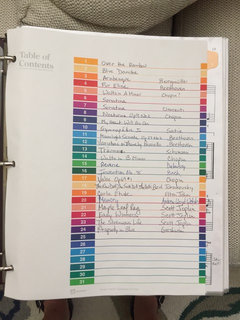 Table of
Contents
1 Over the Rainbow
2 Blue Danube
3 Arabesque Burgmüller
4 Fur Elise Beethoven
5 Waltz in A Minor Chopin
6 Sonatina
7 Sonatina Clementi
8 Nocturne Op 9 No 2 Chopin
9 My Heart Will Go On
10 Gymnopedie 1 Satie
11 Moonlight Sonata Beethoven
12 Beethoven
13 Schumann
14 Waltz in B Minor Chopin
15 Reverie Debussy
16 Invention No. Bach
17 Valse Op 64 Chopin
18 Tchaikovsky
19 Elton John
20 Memory Andrew Lloyd Webber
21 Maple Leaf Rag Scott Joplin
22 Scott Joplin
23 The Entertainer Scott Joplin
24 Rhapsody in Blue Gershwin
25
26
27
28
29
30
31